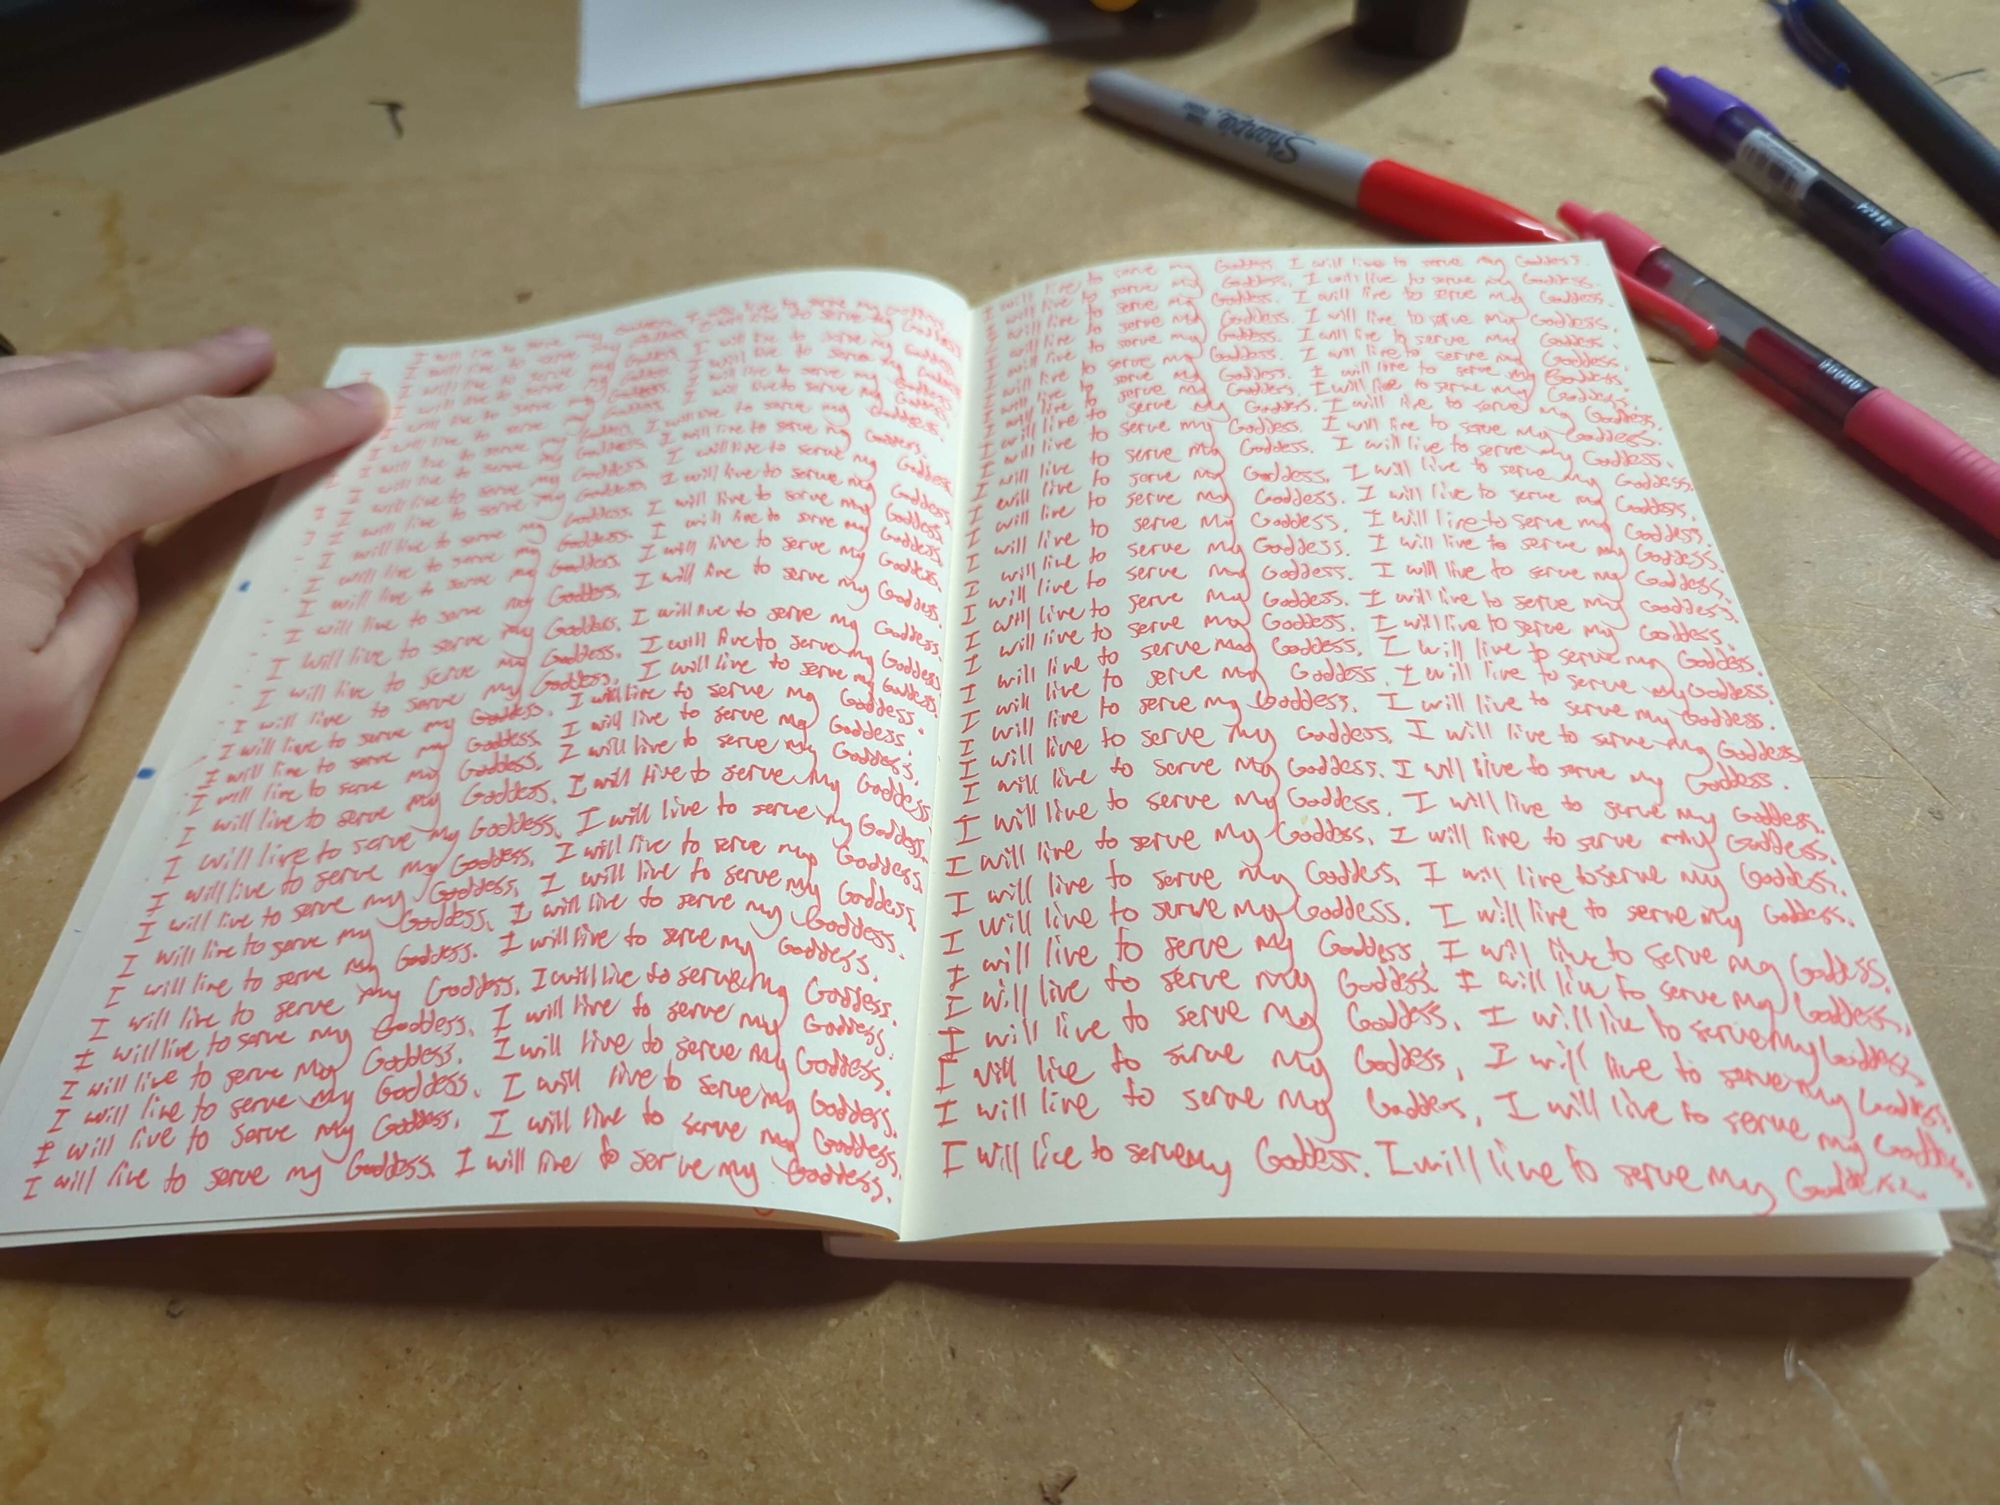 Sharpie
I will live to serve my Goddess. I will live to serve my Goddess.
I will live to serve my Goddess. I will live to serve my Goddess.
I will live to serve my Goddess. I will live to serve my Goddess.
I will live to serve my Goddess. I will live to serve my Goddess.
I will live to serve my Goddess. I will live to serve my Goddess.
I will live to serve my Goddess. I will live to serve my Goddess.
I will live to serve my Goddess. I will live to serve my Goddess.
I will live to serve my Goddess. I will live to serve my Goddess.
I will live to serve my Goddess. I will live to serve my Goddess.
I will live to serve my Goddess. I will live to serve my Goddess.
I will live to serve my Goddess. I will live to serve my Goddess.
I will live to serve my Goddess. I will live to serve my Goddess.
I will live to serve my Goddess. I will live to serve my Goddess.
I will live to serve my Goddess. I will live to serve my Goddess.
I will live to serve my Goddess. I will live to serve my Goddess.
I will live to serve my Goddess. I will live to serve my Goddess.
I will live to serve my Goddess. I will live to serve my Goddess.
I will live to serve my Goddess. I will live to serve my Goddess.
I will live to serve my Goddess. I will live to serve my Goddess.
I will live to serve my Goddess. I will live to serve my Goddess.
I will live to serve my Goddess. I will live to serve my Goddess.
I will live to serve my Goddess. I will live to serve my Goddess.
I will live to serve my Goddess. I will live to serve my Goddess.
I will live to serve my Goddess. I will live to serve my Goddess.
I will live to serve my Goddess. I will live to serve my Goddess.
I will live to serve my Goddess. I will live to serve my Goddess.
I will live to serve my Goddess. I will live to serve my Goddess.
I will live to serve my Goddess. I will live to serve my Goddess.
I will live to serve my Goddess. I will live to serve my Goddess.
I will live to serve my Goddess. I will live to serve my Goddess.
I will live to serve my Goddess. I will live to serve my Goddess.
I will live to serve my Goddess. I will live to serve my Goddess.
I will live to serve my Goddess. I will live to serve my Goddess.
I will live to serve my Goddess. I will live to serve my Goddess.
I will live to serve my Goddess. I will live to serve my Goddess.
I will live to serve my Goddess. I will live to serve my Goddess.
I will live to serve my Goddess. I will live to serve my Goddess.
I will live to serve my Goddess. I will live to serve my Goddess.
I will live to serve my Goddess. I will live to serve my Goddess.
I will live to serve my Goddess. I will live to serve my Goddess.
I will live to serve my Goddess. I will live to serve my Goddess.
I will live to serve my Goddess. I will live to serve my Goddess.
I will live to serve my Goddess. I will live to serve my Goddess.
I will live to serve my Goddess. I will live to serve my Goddess.
I will live to serve my Goddess. I will live to serve my Goddess.
I will live to serve my Goddess. I will live to serve my Goddess.
I will live to serve my Goddess. I will live to serve my Goddess.
I will live to serve my Goddess. I will live to serve my Goddess.
I will live to serve my Goddess. I will live to serve my Goddess.
I will live to serve my Goddess. I will live to serve my Goddess.
I will live to serve my Goddess. I will live to serve my Goddess.
I will live to serve my Goddess. I will live to serve my Goddess.
I will live to serve my Goddess. I will live to serve my Goddess.
I will live to serve my Goddess. I will live to serve my Goddess.
I will live to serve my Goddess. I will live to serve my Goddess.
I will live to serve my Goddess. I will live to serve my Goddess.
I will live to serve my Goddess. I will live to serve my Goddess.
I will live to serve my Goddess. I will live to serve my Goddess.
I will live to serve my Goddess. I will live to serve my Goddess.
I will live to serve my Goddess. I will live to serve my Goddess.